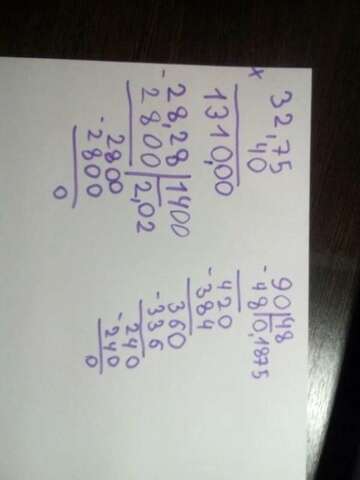 32,75
× 40
1310,00
- 28,28 | 1400
2800 | 2,02
2800
- 2800
0
- 90 | 48
48 | 0,1875
420
- 384
360
- 336
240
- 240
0